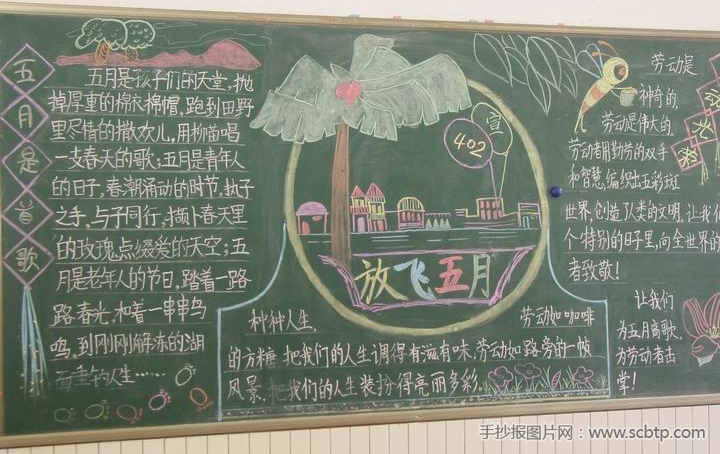 五月是首歌
五月是孩子们的天堂，抛
掉厚重的棉衣棉帽，跑到田野
里尽情的撒欢儿，用柳笛唱
一支春天的歌；五月是青年人
的日子，春潮涌动的时节，执子
之手，与子同行，摘下春天里
的玫瑰点缀爱的天空；五
月是老年人的节日，踏着一路
路春光，和着一串串鸟
鸣，到刚刚解冻的湖
面垂钓人生……
宣
402
放飞五月
种种人生，
劳动如咖啡
的方糖，把我们的人生调得有滋有味，劳动如路旁的一帧
风景，把我们的人生装扮得亮丽多彩。
劳动是
神奇的，
劳动是伟大的，
劳动者用勤劳的双手
和智慧，编织出五彩斑
世界，创造了人类的文明，让我们
个特别的日子里，向全世界的
者致敬！
让我们
为五月高歌，
为劳动者击
掌！
手抄报图片网：www.scbtp.com